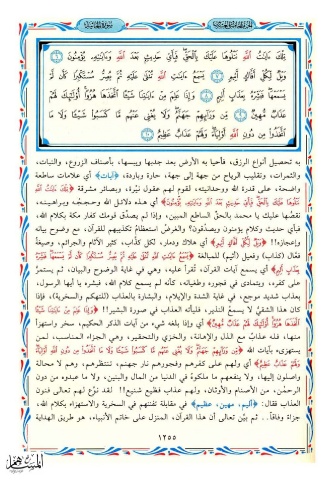 الجزء الخامس والعشرون سورة الجاثية
تِلْكَ ءَايَٰتُ ٱللَّهِ نَتْلُوهَا عَلَيْكَ بِٱلْحَقِّ فَبِأَيِّ حَدِيثٍۭ بَعْدَ ٱللَّهِ وَءَايَٰتِهِۦ يُؤْمِنُونَ ٦
وَيْلٌ لِّكُلِّ أَفَّاكٍ أَثِيمٍ ٧ يَسْمَعُ ءَايَٰتِ ٱللَّهِ تُتْلَىٰ عَلَيْهِ ثُمَّ يُصِرُّ مُسْتَكْبِرًا كَأَن لَّمْ
يَسْمَعْهَا فَبَشِّرْهُ بِعَذَابٍ أَلِيمٍ ٨ وَإِذَا عَلِمَ مِنْ ءَايَٰتِنَا شَيْـًٔا ٱتَّخَذَهَا هُزُوًا أُو۟لَٰٓئِكَ لَهُمْ
عَذَابٌ مُّهِينٌ ٩ مِّن وَرَآئِهِمْ جَهَنَّمُ وَلَا يُغْنِى عَنْهُم مَّا كَسَبُوا۟ شَيْـًٔا وَلَا مَا
ٱتَّخَذُوا۟ مِن دُونِ ٱللَّهِ أَوْلِيَآءَ وَلَهُمْ عَذَابٌ عَظِيمٌ ١٠
به تحصيل أنواع الرزق، فأحيا به الأرض بعد جدبها ويبسها، بأصناف الزروع، والنبات،
والثمرات، وتقليب الرياح من جهة إلى جهة، حارة وباردة، ﴿آيات﴾ أي علامات ساطعة
واضحة، على قدرة الله ووحدانيته، لقوم لهم عقول نيّرة، وبصائر مشرقة ﴿تلك آيات الله
نتلوها عليك بالحق فبأي حديث بعد الله وآياته يؤمنون﴾ أي هذه دلائل الله وحججه وبراهينه،
نقصّها عليك يا محمد بالحق الساطع المبين، وإذا لم يصدّق قومك كفار مكة بكلام الله،
فبأي حديث وكلام يؤمنون ويصدّقون؟ والغرض استعظام تكذيبهم للقرآن، مع وضوح بيانه
وإعجازه!! ﴿ويل لكل أفاك أثيم﴾ أي هلاك ودمار، لكل كذّاب، كثير الآثام والجرائم، وصيغة
فعّال (كذّاب) وفعيل (أثيم) للمبالغة ﴿يسمع آيات الله تتلى عليه ثم يصر مستكبرا كأن لم يسمعها فبشره
بعذاب أليم﴾ أي يسمع آيات القرآن، تُقرأ عليه، وهي في غاية الوضوح والبيان، ثم يستمرّ
على كفره، ويتمادى في فجوره وطغيانه، كأنه لم يسمع كلام الله، فبشره يا أيها الرسول،
بعذاب شديد موجع، في غاية الشدة والإيلام، والبشارة بالعذاب (للتهكم والسخرية)، فإذا
كان هذا الشقيّ لا يسمع النذير، فليأته العذاب في صورة البشير!! ﴿وإذا علم من آياتنا شيئا
اتخذها هزوا أولئك لهم عذاب مهين﴾ أي وإذا بلغه شيء من آيات الذكر الحكيم، سخر واستهزأ
منها، فله عذاب مع الذلّ والإهانة، والخزي والتحقير، وهي الجزاء المناسب، لمن
يستهزىء بآيات الله ﴿من ورائهم جهنم ولا يغني عنهم ما كسبوا شيئا ولا ما اتخذوا من دون الله أولياء
ولهم عذاب عظيم﴾ أي ولهم على كفرهم وفجورهم نار جهنم، تنتظرهم، وهم لا محالة
واصلون إليها، ولا ينفعهم ما ملكوه في الدنيا من المال والبنين، ولا ما عبدوه من دون
الرحمن، من الأصنام والأوثان، ولهم عذاب فظيع شنيع!! لقد نوّع لهم تعالى فنون
العذاب فقال: ﴿أليم، مهين، عظيم﴾ في مقابلة تفننهم في السخرية والاستهزاء بكلام الله،
جزاء وفاقاً.. ثم بيّن تعالى أن هذا القرآن، المنزل على خاتم الأنبياء، هو طريق الهداية
١٢٥٥